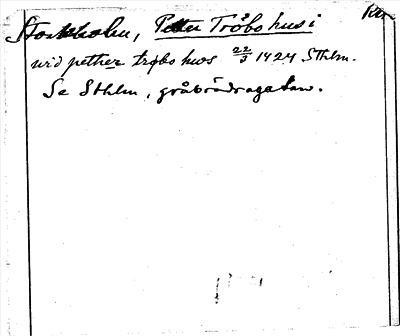 Stockholm, Petter Tråbo hus i
wid pether trøbo hws 22/3 1424 Sthlm.
Se Sthlm, gråbrödragatan.